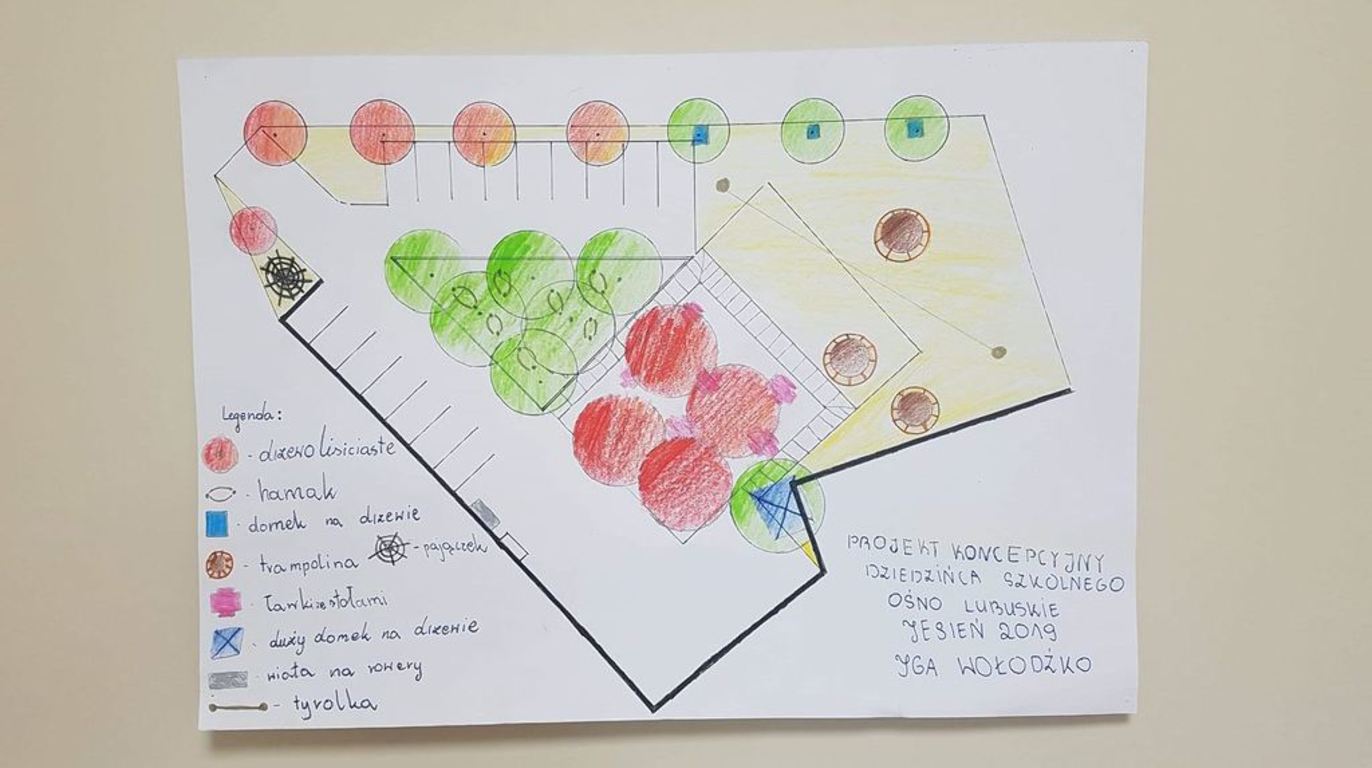 Legenda:
- drzewo lisiciaste
- hamak
- domek na drzewie
- trampolina - pajączek
- ławki ze stołami
- duży domek na drzewie
- wiata na rowery
- tyrolka
PROJEKT KONCEPCYJNY
DZIEDZIŃCA SZKOLNEGO
OŚNO LUBUSKIE
JESIEŃ 2019
IGA WOŁODŹKO